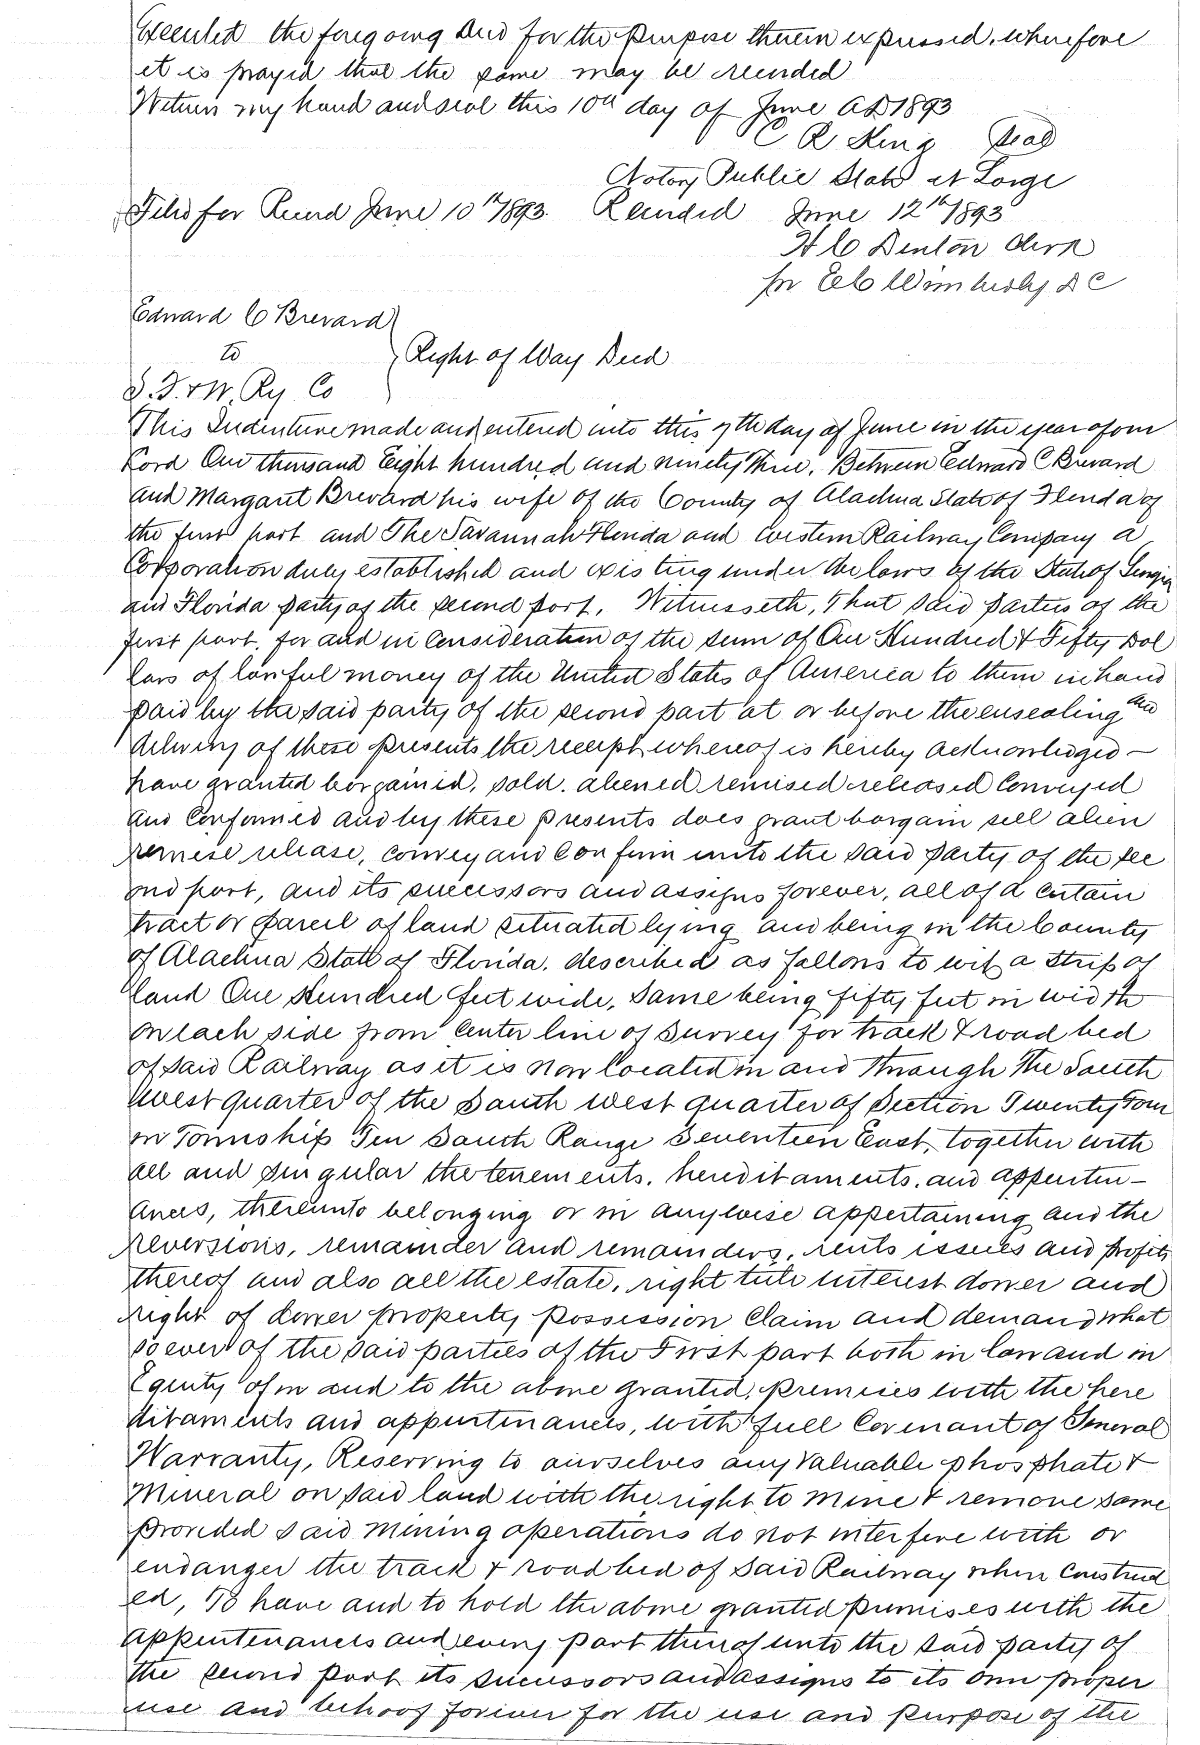 Executed the foregoing Deed for the purpose therein expressed. wherefore
it is prayed that the same may be recorded
Witness my hand and seal this 10th day of June AD 1893
C R King Seal
Notary Public State at Large
Filed for Record June 10th 1893. Recorded June 12th 1893
H C Denton Clerk
pr E C Wimberly D C
Edward C Brevard
to
Right of Way Deed
S. F. & W. Ry Co
This Indenture made and entered into this 7th day of June in the year of our
Lord One thousand Eight hundred and ninety three. Between Edward C Brevard
and Margaret Brevard his wife of the County of Alachua State of Florida of
the first part and The Savannah Florida and Western Railway Company a
Corporation duly established and existing under the laws of the State of Georgia
and Florida party of the second part. Witnesseth, That said parties of the
first part. for and in Consideration of the sum of One Hundred & Fifty Dol
lars of lawful money of the United States of America to them in hand
paid by the said party of the second part at or before the ensealing and
delivery of these presents the receipt whereof is hereby acknowledged—
have granted bargained, sold. aliened remised released Conveyed
and Confirmed and by these presents does grant bargain sell alien
remise release, convey and Confirm unto the said party of the sec
ond part, and its successors and assigns forever, all of a certain
tract or parcel of land situated lying and being in the County
of Alachua State of Florida. described as follows to wit a strip of
land One Hundred feet wide, Same being fifty feet in width
on each side from Center line of Survey for track & road bed
of said Railway as it is now located in and through the South
West quarter of the South west quarter of Section Twenty Four
in Township Ten South Range Seventeen East, together with
all and singular the tenements. hereditaments. and appurten—
ances, thereunto belonging or in anywise appertaining and the
reversions, remainder and remainders, rents issues and profits
thereof and also all the estate, right title interest dower and
right of dower property possession Claim and demand what
soever of the said parties of the First part both in law and in
Equity of in and to the above granted, premises with the here
ditaments and appurtenances, with full Covenant of General
Warranty, Reserving to ourselves any Valuable phosphate &
Mineral on said land with the right to mine & remove same
provided said mining operations do not interfere with or
endanger the track & roadbed of said Railway when Construct
ed, To have and to hold the above granted premises with the
appurtenances and every part thereof unto the said party of
the second part its successors and assigns to its own proper
use and behoof forever for the use and purpose of the